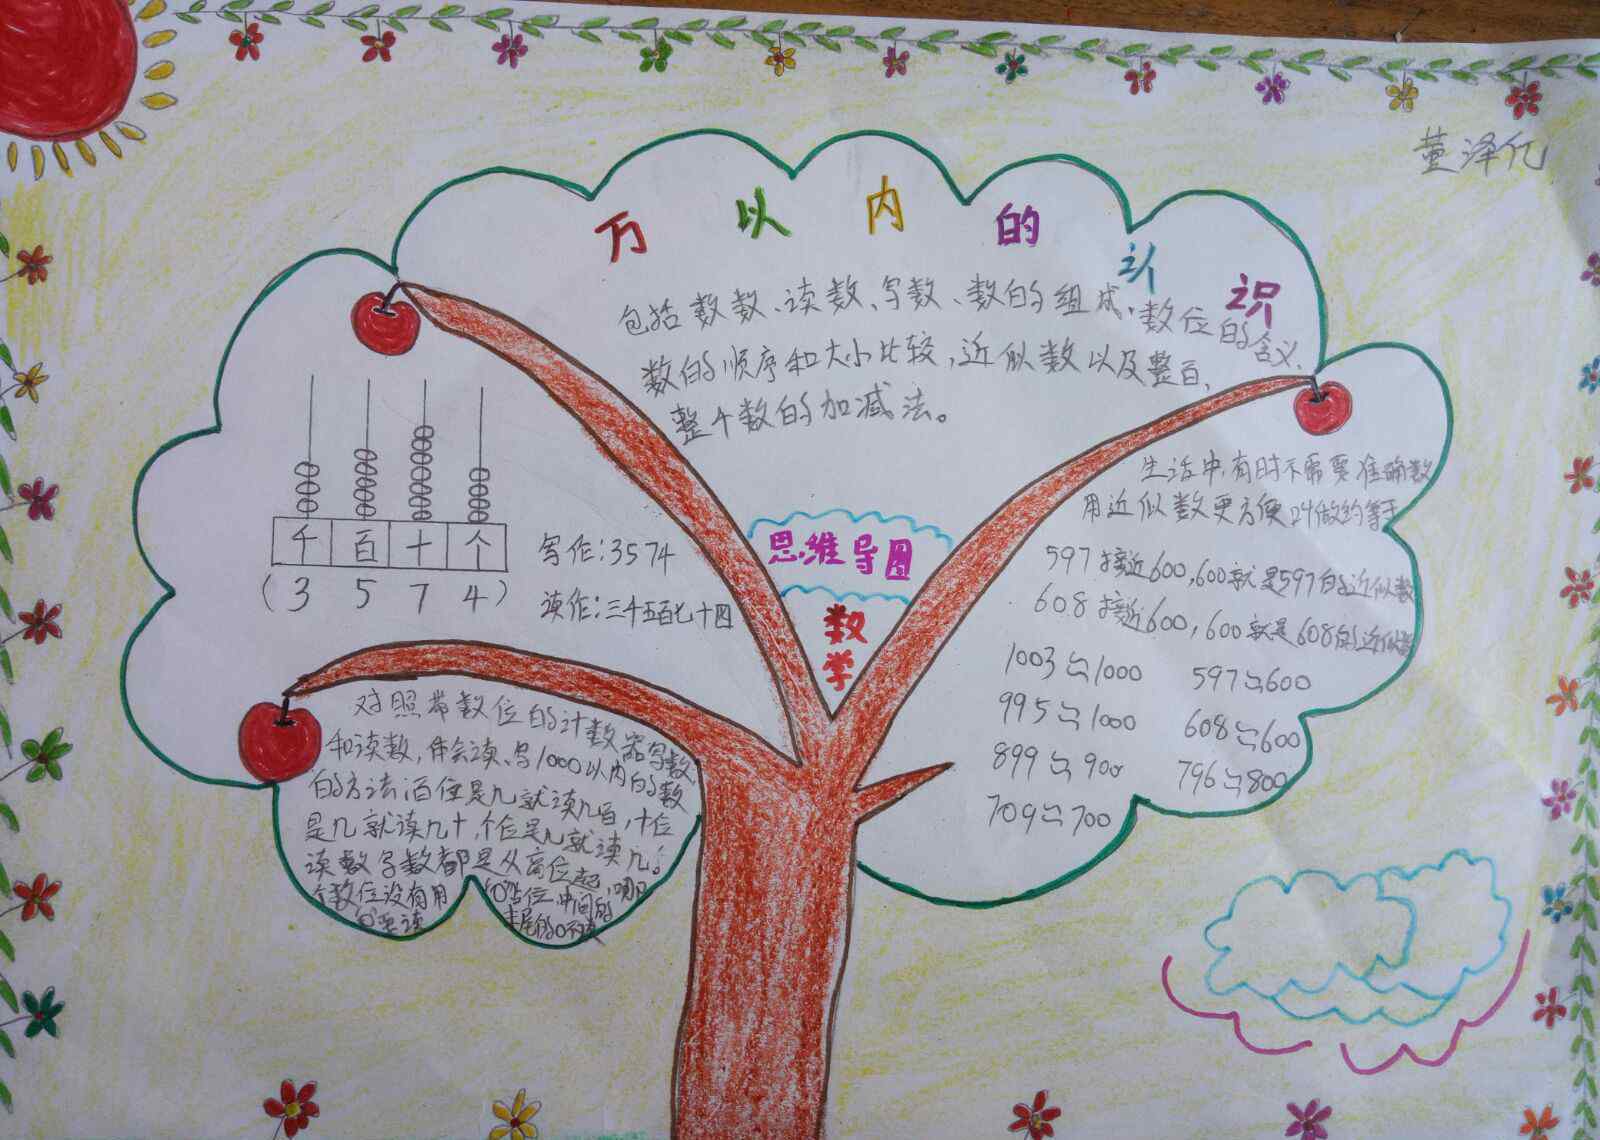 董泽亿
万以内的认识
包括数数、读数、写数、数的组成、数位的含义、
数的顺序和大小比较,近似数以及整百、
整个数的加减法。
千 百 十 个
(3 5 7 4)
写作:3574
读作:三千五百七十四
思维导图
数学
生活中,有时不需要准确数
用近似数更方便叫做约等于
597接近600,600就是597的近似数
608接近600,600就是608的近似数
1003≈1000 597≈600
995≈1000 608≈600
899≈900 796≈800
709≈700
对照带数位的计数器写数
和读数,体会读、写1000以内的数
的方法:百位是几就读几百,十位
是几就读几十,个位是几就读几。
读数写数都是从高位起,哪
个数位没有用"0"占位,中间的
"0"要读 末尾的0不读